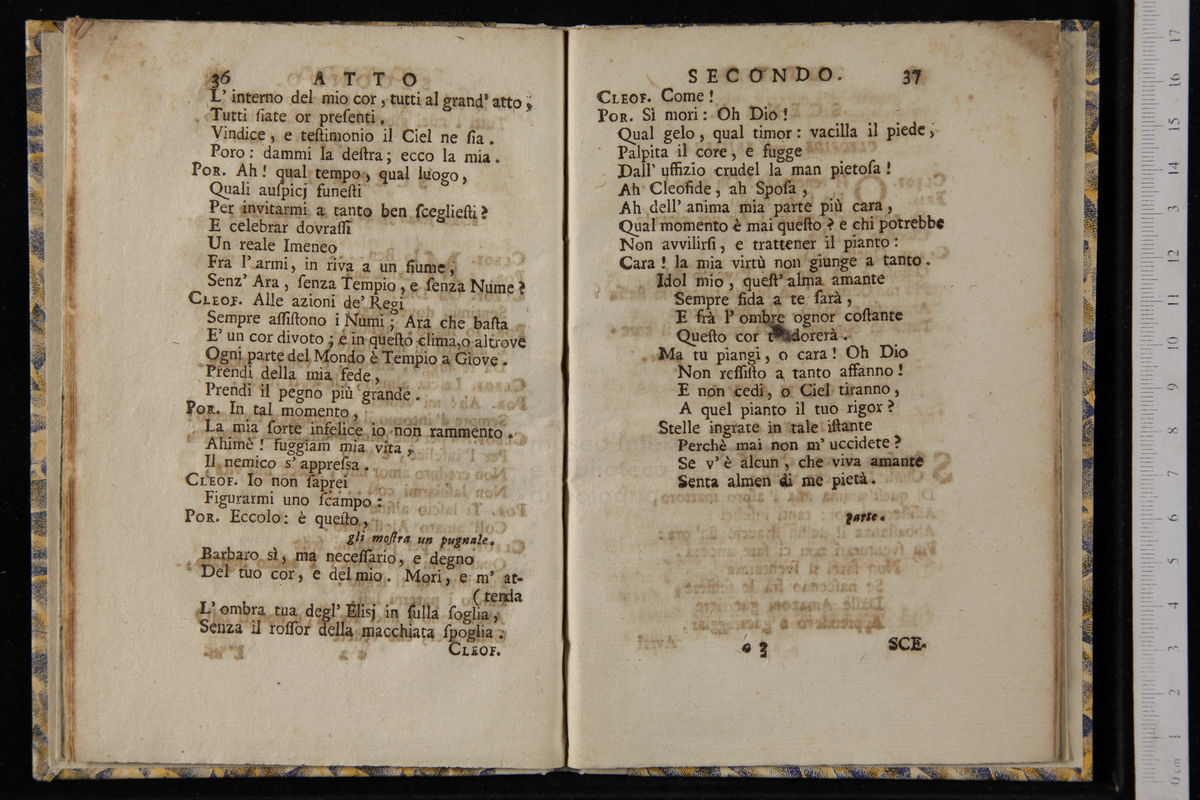 36 ATTO
L' interno del mio cor, tutti al grand' atto;
Tutti ſiate or preſenti.
Vindice, e teſtimonio il Ciel ne ſia.
Poro: dammi la deſtra; ecco la mia.
POR. Ah! qual tempo, qual luogo,
Quali auſpicj funeſti
Per invitarmi a tanto ben ſceglieſti?
E celebrar dovraſſi
Un reale Imeneo
Fra l' armi, in riva a un fiume,
Senz' Ara, ſenza Tempio, e ſenza Nume?
CLEOF. Alle azioni de' Regi
Sempre aſſiſtono i Numi; Ara che baſta
E' un cor divoto; e in queſto clima, o altrove
Ogni parte del Mondo è Tempio a Giove.
Prendi della mia fede,
Prendi il pegno più grande.
POR. In tal momento,
La mia ſorte infelice io non rammento.
Ahimè! fuggiam mia vita,
Il nemico s' appreſsa.
CLEOF. Io non ſaprei
Figurarmi uno ſcampo:
POR. Eccolo: è queſto,
gli moſtra un pugnale.
Barbaro sì, ma neceſſario, e degno
Del tuo cor, e del mio. Mori, e m' at-
(tenda
L' ombra tua degl' Elisj in ſulla ſoglia,
Senza il roſſor della macchiata ſpoglia.
CLEOF.
SECONDO. 37
CLEOF. Come!
POR. Sì mori: Oh Dio!
Qual gelo, qual timor: vacilla il piede,
Palpita il core, e fugge
Dall' uffizio crudel la man pietoſa!
Ah Cleofide, ah Spoſa,
Ah dell' anima mia parte più cara,
Qual momento è mai queſto? e chi potrebbe
Non avvilirſi, e trattener il pianto:
Cara! la mia virtù non giunge a tanto.
Idol mio, queſt' alma amante
Sempre fida a te ſarà,
E frà l' ombre ognor coſtante
Queſto cor t' adorerà.
Ma tu piangi, o cara! Oh Dio
Non reſſiſto a tanto affanno!
E non cedi, o Ciel tiranno,
A quel pianto il tuo rigor?
Stelle ingrate in tale iſtante
Perchè mai non m' uccidete?
Se v' è alcun, che viva amante
Senta almen di me pietà.
parte.
SCE-